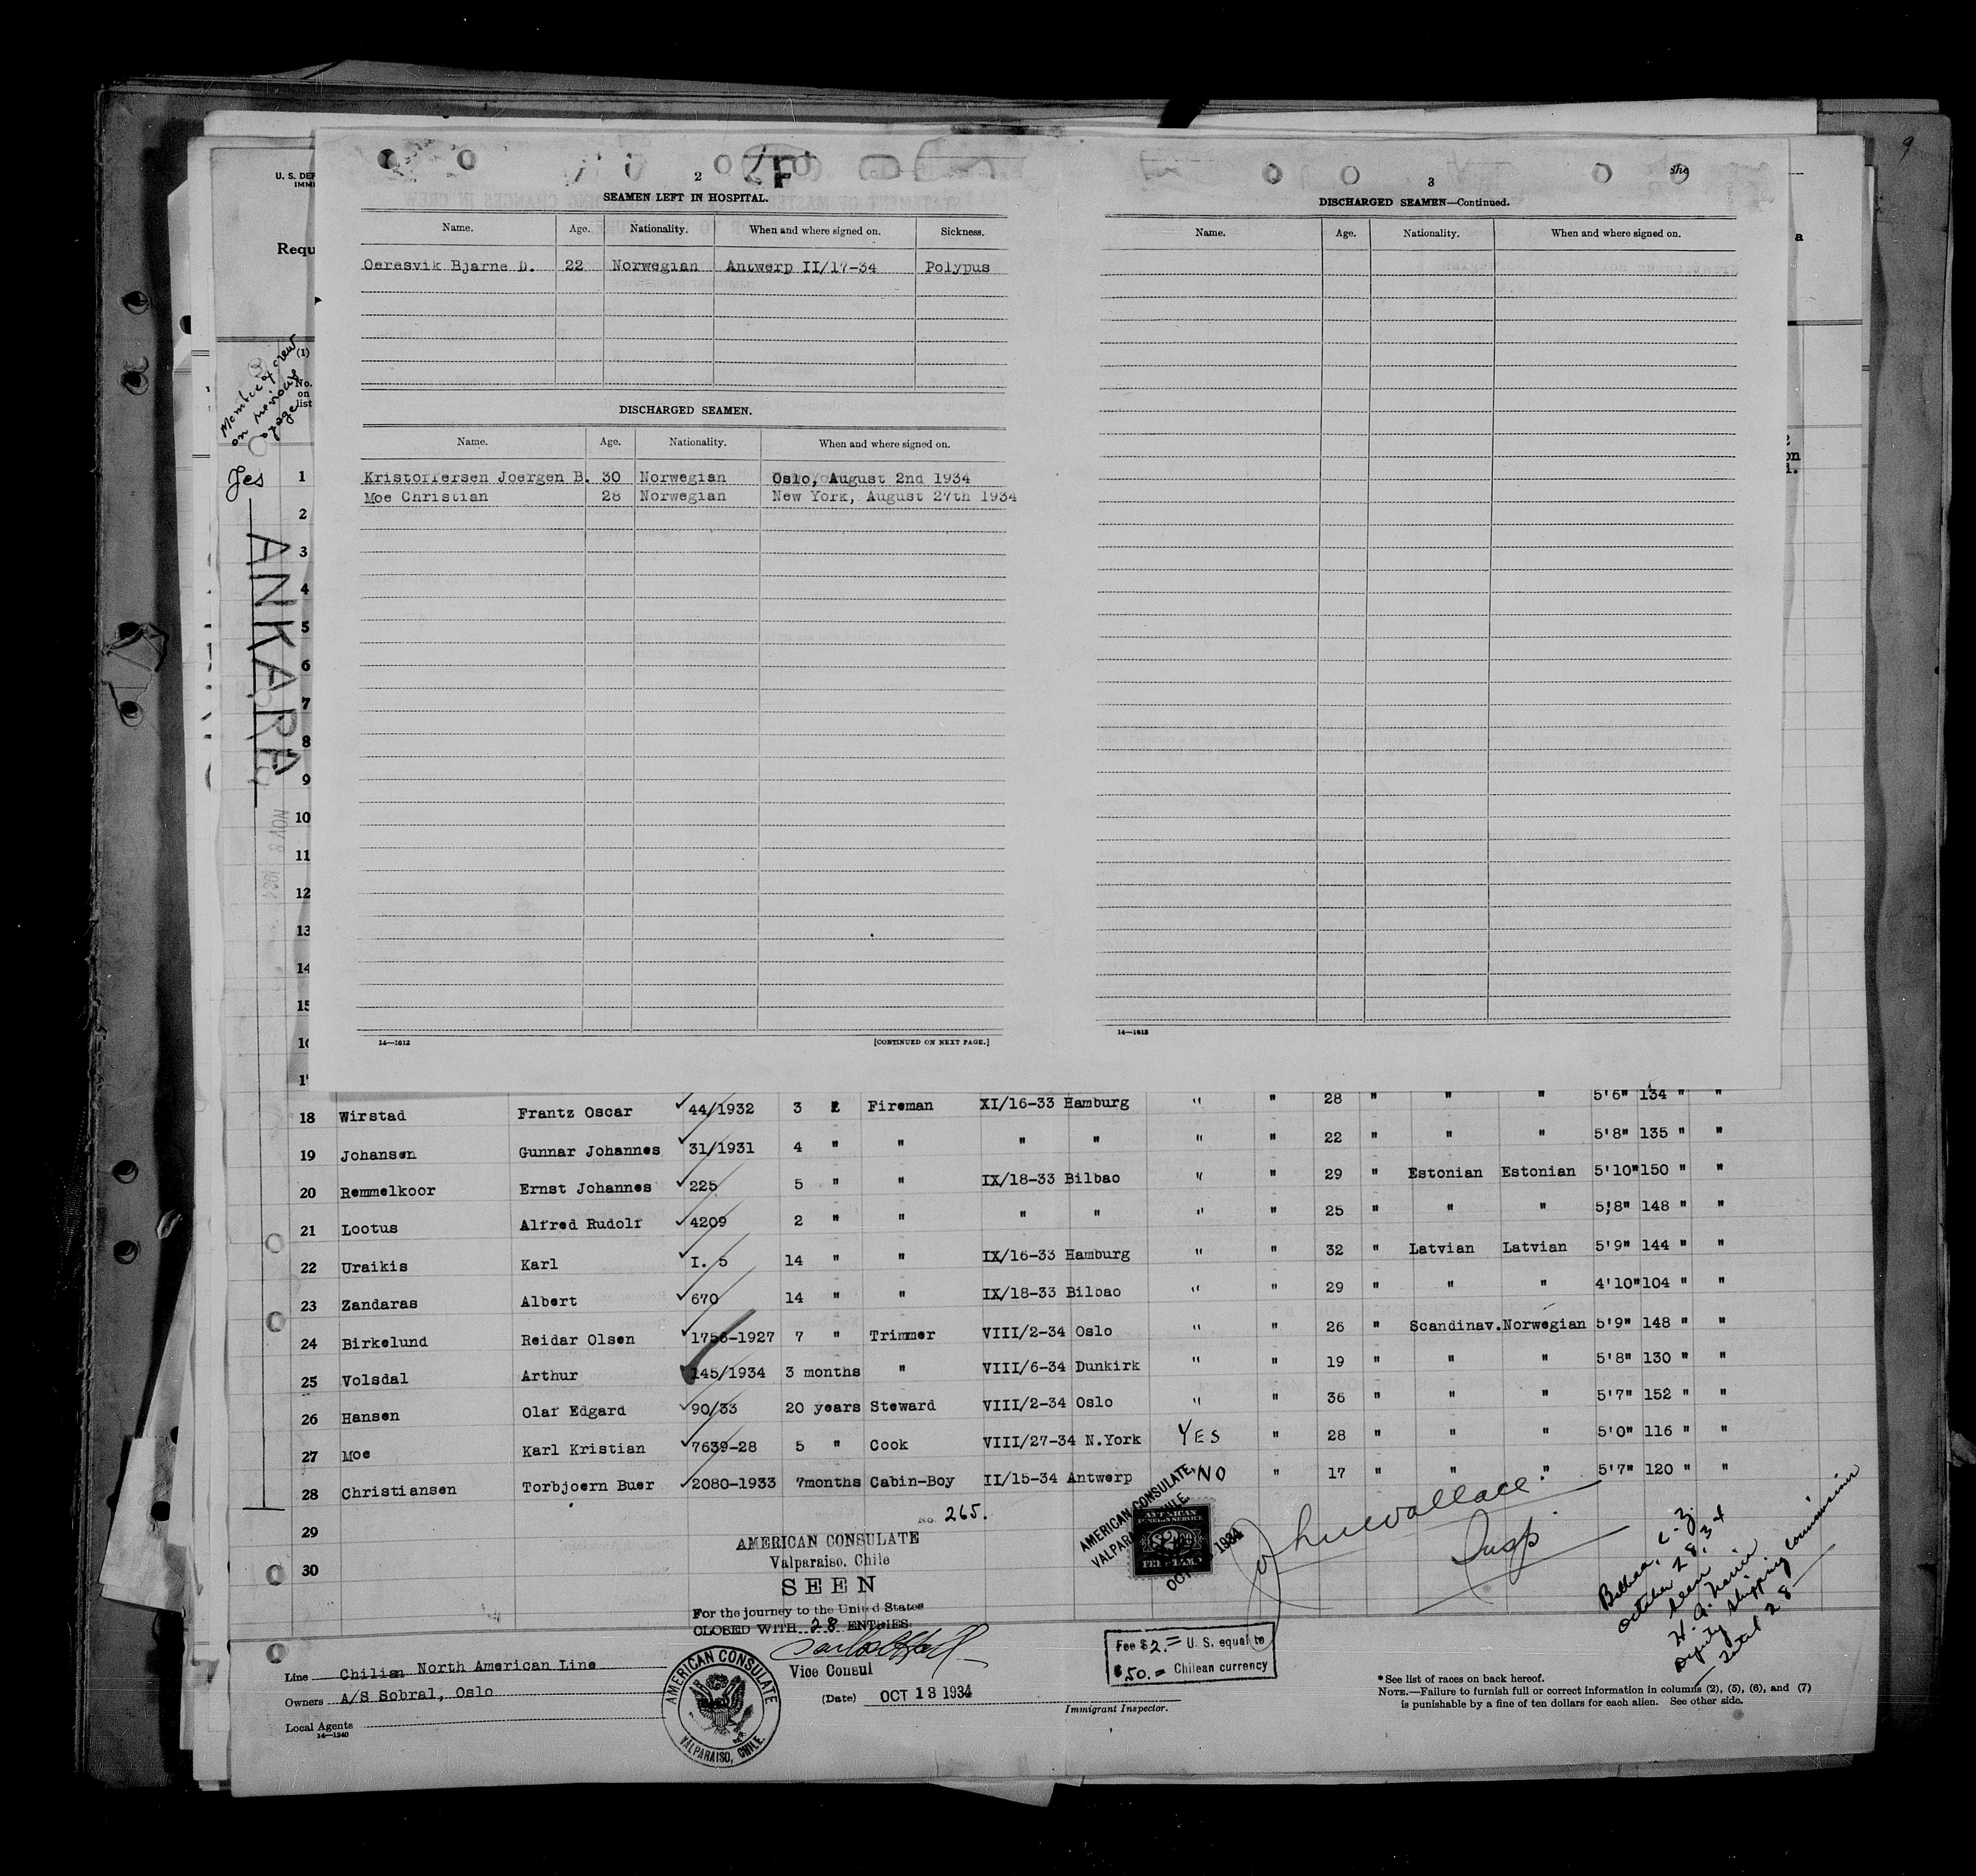 9
U. S. DEP
IMMI
Requ
a
Member of crew
on previous
page
(1)
No.
on
list
Yes
ANKARA
NOV 8 1934
2
SEAMEN LEFT IN HOSPITAL.
Name. Age. Nationality. When and where signed on. Sickness.
Oeresvik Bjarne D. 22 Norwegian Antwerp II/17-34 Polypus
DISCHARGED SEAMEN.
Name. Age. Nationality. When and where signed on.
Kristoffersen Joergen B. 30 Norwegian Oslo, August 2nd 1934
Moe Christian 28 Norwegian New York, August 27th 1934
14—1612 [CONTINUED ON NEXT PAGE.]
3
DISCHARGED SEAMEN—Continued.
Name. Age. Nationality. When and where signed on.
14—1612
1
2
3
4
5
6
7
8
9
10
11
12
13
14
15
18 Wirstad Frantz Oscar 44/1932 3 Fireman XI/16-33 Hamburg " " 28 " " " 5'6" 134 " "
19 Johansen Gunnar Johannes 31/1931 4 " " " " " " 22 " " " 5'8" 135 " "
20 Remmelkoor Ernst Johannes 225 5 " " IX/18-33 Bilbao " " 29 " Estonian Estonian 5'10" 150 " "
21 Lootus Alfred Rudolf 4209 2 " " " " " " 25 " " " 5'8" 148 " "
22 Uraikis Karl I. 5 14 " " IX/16-33 Hamburg " " 32 " Latvian Latvian 5'9" 144 " "
23 Zandaras Albert 670 14 " " IX/18-33 Bilbao " " 29 " " " 4'10" 104 " "
24 Birkelund Reidar Olsen 1756-1927 7 " Trimmer VIII/2-34 Oslo " " 26 " Scandinav. Norwegian 5'9" 148 " "
25 Volsdal Arthur 145/1934 3 months " VIII/6-34 Dunkirk " " 19 " " " 5'8" 130 " "
26 Hansen Olaf Edgard 90/33 20 years Steward VIII/2-34 Oslo " " 36 " " " 5'7" 152 " "
27 Moe Karl Kristian 7639-28 5 " Cook VIII/27-34 N.York YES " 28 " " " 5'0" 116 " "
28 Christiansen Torbjoern Buer 2080-1933 7months Cabin-Boy II/15-34 Antwerp NO " 17 " " " 5'7" 120 " "
29
30
No. 265.
AMERICAN CONSULATE
Valparaiso, Chile
SEEN
For the journey to the United States
CLOSED WITH 28 ENTRIES
Vice Consul
(Date) OCT 13 1934
AMERICAN CONSULATE
VALPARAISO, CHILE.
AMERICAN CONSULATE,
VALPARAISO, CHILE.
OCT 1934
AMERICAN
FOREIGN SERVICE
$2.00
FEE STAMP
Insp
Fee $ 2.= U. S. equal to
$ 50.= Chilean currency
Immigrant Inspector.
Balboa, C. Z.
October 28, 34
Seen
Deputy Shipping Commissioner
Total 28
Line Chilian North American Line
Owners A/S Sobral, Oslo
Local Agents
14—1240
* See list of races on back hereof.
NOTE.—Failure to furnish full or correct information in columns (2), (5), (6), and (7)
is punishable by a fine of ten dollars for each alien. See other side.